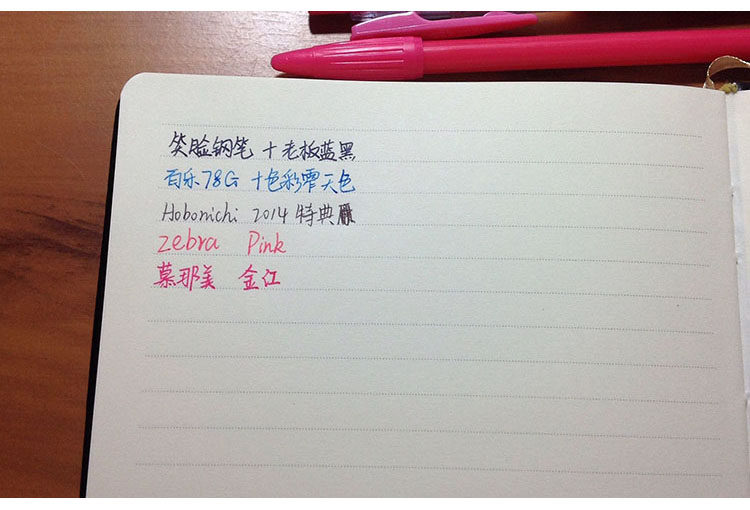 笑脸钢笔 十老板蓝黑
百乐78G 十色彩雫天色
Hobonichi 2014 特典
zebra Pink
慕那美 金江